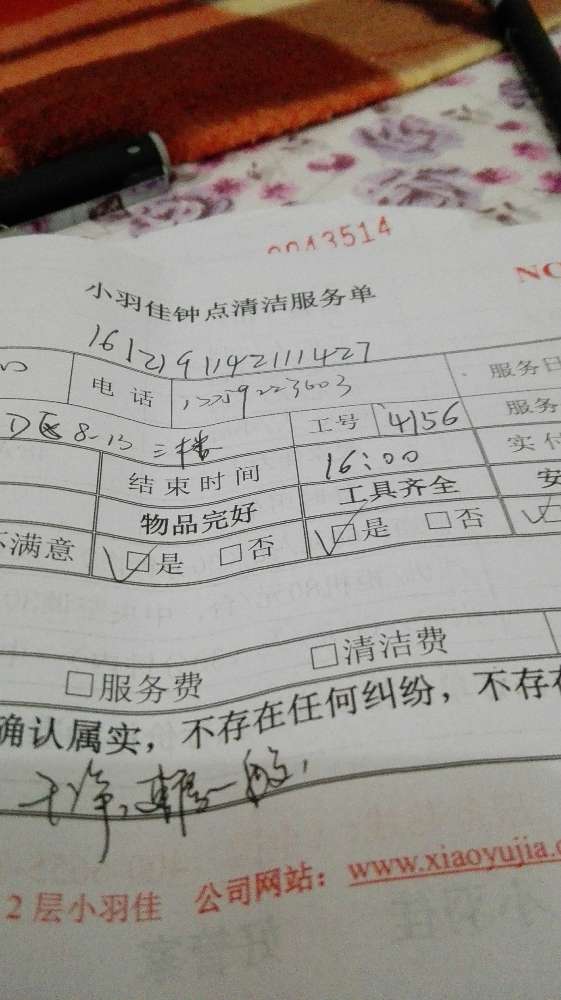 0043514
NO
小羽佳钟点清洁服务单
1612191142111427
电话
服务日
D区 8-13 三楼 工号 4156 服务
结束时间 16:00 实付
物品完好 工具齐全 安
不满意 □是 □否 □是 □否
□服务费 □清洁费
确认属实，不存在任何纠纷，不存在
干净，
2层小羽佳 公司网站：www.xiaoyujia.c